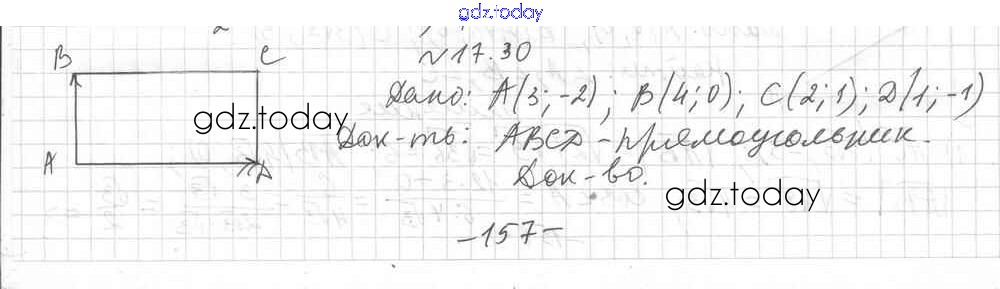 gdz.today
B C
№17.30
Дано: A(3;-2); B(4;0); C(2;1); D(1;-1)
gdz.today
Док-ть: ABCD - прямоугольник.
A D
Док-во.
gdz.today
-157-